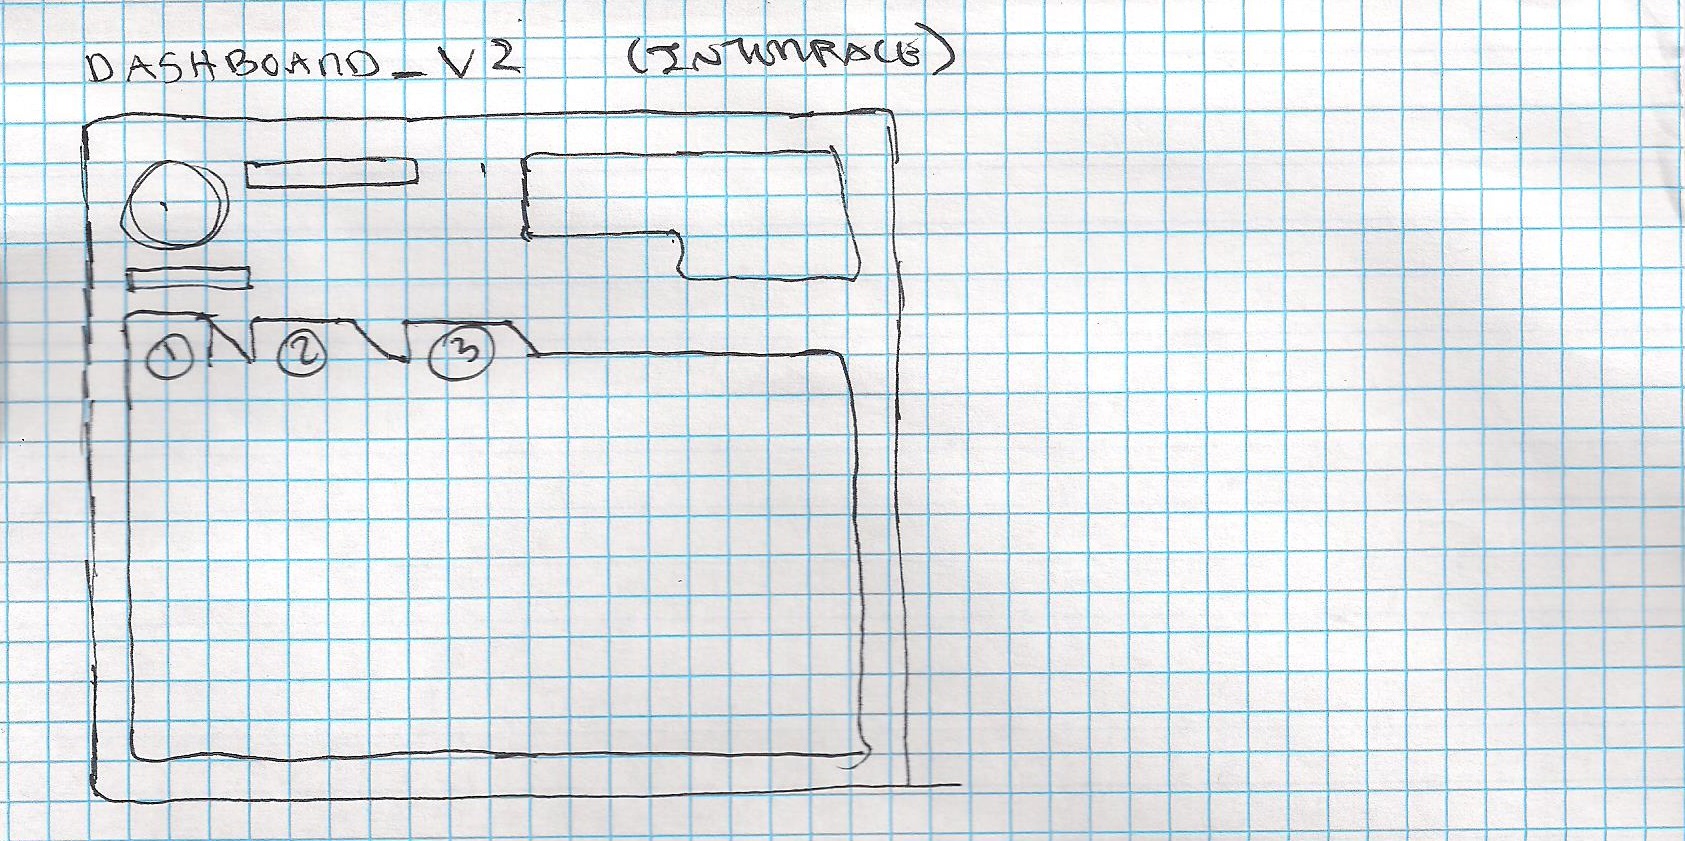 DASHBOARD_V2 (INTERFACE)
1 2 3